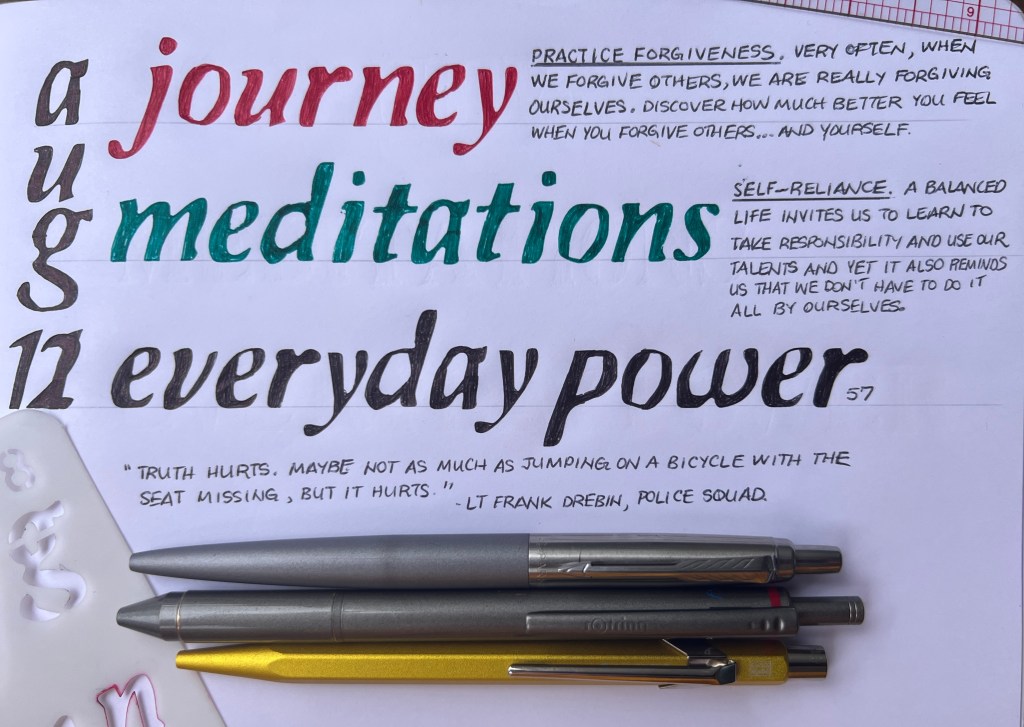 aug 12
journey
PRACTICE FORGIVENESS. VERY OFTEN, WHEN
WE FORGIVE OTHERS, WE ARE REALLY FORGIVING
OURSELVES. DISCOVER HOW MUCH BETTER YOU FEEL
WHEN YOU FORGIVE OTHERS... AND YOURSELF.
meditations
SELF-RELIANCE. A BALANCED
LIFE INVITES US TO LEARN TO
TAKE RESPONSIBILITY AND USE OUR
TALENTS AND YET IT ALSO REMINDS
US THAT WE DON'T HAVE TO DO IT
ALL BY OURSELVES.
everyday power
57
"TRUTH HURTS. MAYBE NOT AS MUCH AS JUMPING ON A BICYCLE WITH THE
SEAT MISSING, BUT IT HURTS."
- LT FRANK DREBIN, POLICE SQUAD.
rOtring
9